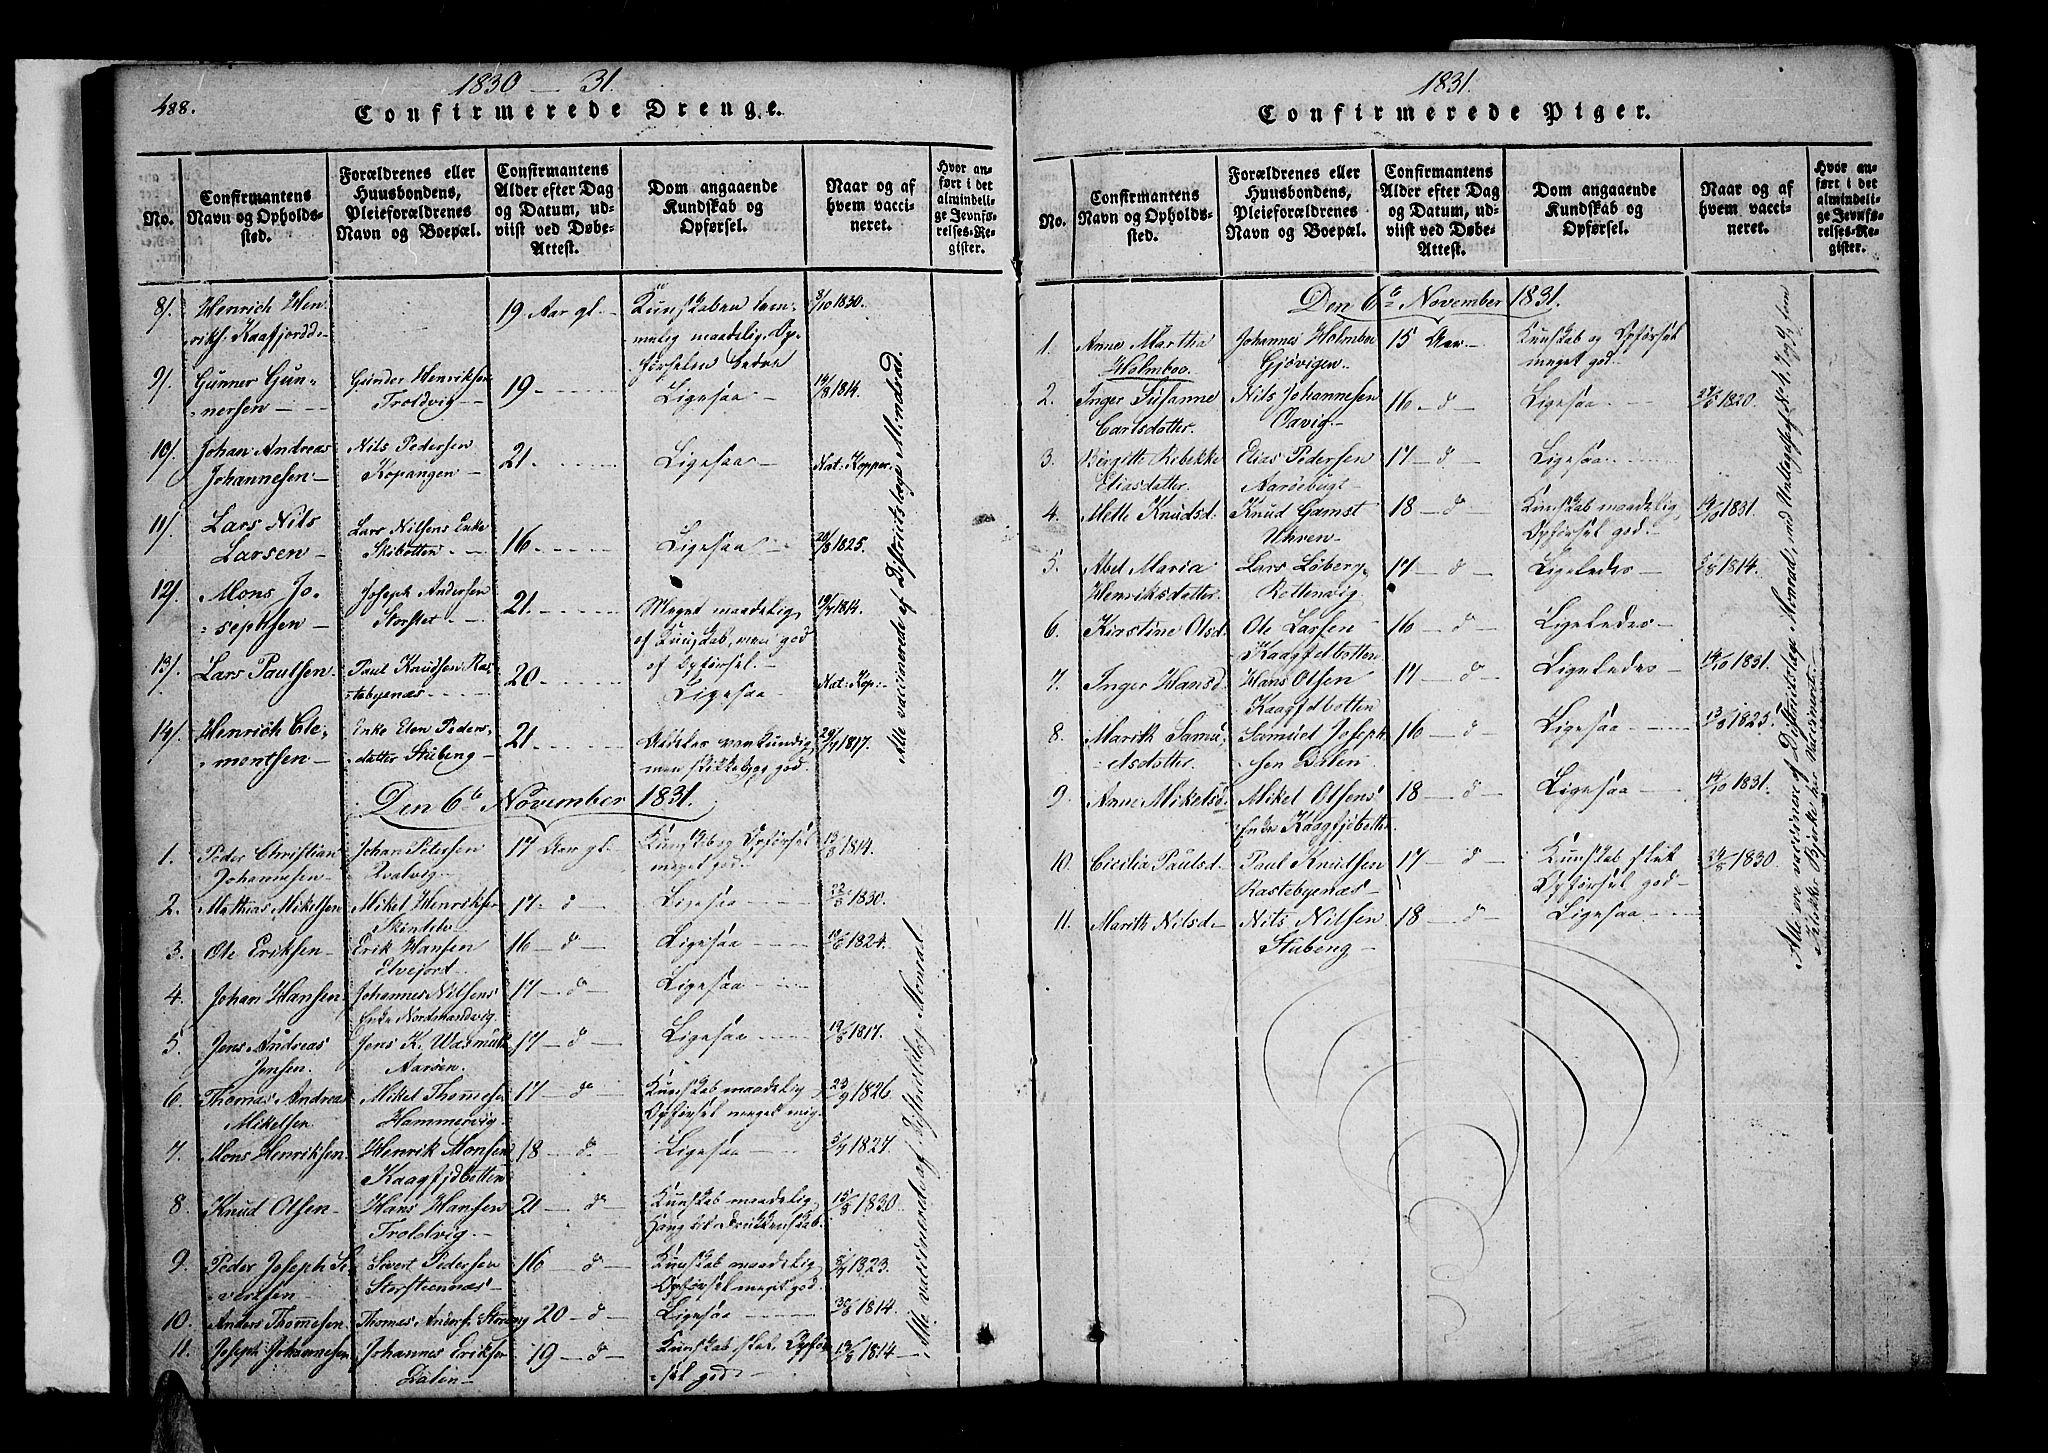 488.
1830 — 31.
Confirmerede Drenge.
No.
Confirmantens Navn og Opholdssted.
Forældrenes eller Huusbondens, Pleieforældrenes Navn og Boepæl.
Confirmantens Alder efter Dag og Datum, udviist ved Døbe-Attest.
Dom angaaende Kundskab og Opførsel.
Naar og af hvem vaccineret.
Hvor anført i det almindelige Jevnførelses-Register.
8/. Henrich Hen- 19 Aar gl. Kunskaben tem- 8/10 1830.
riks. Kaafjordd. melig maadelig, Op-
førselen bedre
9/. Gunner Gun- Gunder Henriksen 19 — Ligesaa — 14/8 1814.
nersen — Troldvig —
10/. Johan Andreas Nils Pedersen 21. Ligesaa — Nat: Kopper.
Johannesen — Kopangen —
11/. Lars Nils Lars Nilsens Enke 16 Ligesaa 28/8 1825.
Larsen — Skibotten —
12/. Mons Jo- Joseph Andersen 21. Meget maadelig 19/7 1814.
sephsen — Storslet — af Kunskab, men god
af Opførsel. —
13/. Lars Paulsen Paul Knudsen Ras- 20 Ligesaa — Nat: Kop: —
tebyenæs
14/. Henrich Cle- Enke Elen Peders- 21. vankundig, 29/7 1817.
mentsen — datter Stubeng — men skikkelig og god.
Alle vaccinerede af Districtslæge Mondrad.
Den 6te November 1831.
1. Peder Christian Johan Petersen 17 Aar gl. Kunskab og Opførsel 13/8 1814.
Johannesen — Qvalvig — meget god —
2. Mathias Mikelsen Mikel Henriksen 17 — d° Ligesaa — 22/8 1830.
Skintelv —
3. Ole Eriksen — Erik Hansen 16 — d° — Ligesaa — 1824.
Elvejort —
4. Johan Hansen Johannes Nilsens 17 — d° — Ligesaa —
Enke Nordmandvig
5. Jens Andreas Jens K. Wasmuth 17 — d° — Ligesaa — 19/8 1817.
Jensen. Aarøen.
6. Thomas Andreas Mikel Thomesen 17 — d° Kunskab maadelig 23/9 1826.
Mikelsen Hammervig — Opførsel meget
7. Mons Henriksen Henrik Monsen 18 — d° Ligesaa — 5/7 1827.
Kaagfjdbotten
8. Knud Olsen — Hans Hansen 21 — d° — Kunskab maadelig 15/8 1830.
Troldvig — Hang til Drukkenskab.
9. Peder Joseph Si- Sivert Pedersen 16 — d° — Kunskab maadelig 1823.
vertsen — Storsteennæs — Opførsel meget god.
10. Anders Thomesen Thomas Anders. Storeng 20 — d° Ligesaa — 1814.
11. Joseph Johannesen Johannes Eriksen 19 — d° — Kunskab slet. Opfør- 1814 —
Dalen — sel god —
Alle vaccinerede af Districtslæge Monrad.
1831.
Confirmerede Piger.
No.
Confirmantens Navn og Opholdssted.
Forældrenes eller Huusbondens, Pleieforældrenes Navn og Boepæl.
Confirmantens Alder efter Dag og Datum, udviist ved Døbe-Attest.
Dom angaaende Kundskab og Opførsel.
Naar og af hvem vaccineret.
Hvor anført i det almindelige Jevnførelses-Register.
Den 6te November 1831.
1. Anne Martha Johannes Holmboe 15 Aar — Kunskab og Opførsel
Holmboe. Gjövigen — meget god —
2. Inger Susanne Nils Johannesen 16 — d° — Ligesaa — 1820.
Carlsdatter. Oavig —
3. Birgitte Rebekke Elias Pedersen 17 — d° Ligesaa —
Eliasdatter. Aaröebugt —
4. Mette Knudsd. Knud Gamst 18 — d° — Kunskab maadelig 14/10 1831.
Uhren — Opførsel god —
5. Abel Maria Lars Löberg 17 — d° — Ligeledes — 1814.
Henriksdatter. Rottenvig.
6. Kirstine Olsd. Ole Larsen — 16 — d° Ligeledes —
Kaagfdbotten
7. Inger Hansd. Hans Olsen 17 — d° Ligeledes — 14/10 1831.
Kaagfdbotten
8. Marith Samu- Samuel Joseph- 16 — d° Ligesaa — 13/8 1825.
elsdatter. sen Dalen —
9. Anne Mikelsd. Mikel Olsens 18 — d° Ligesaa — 14/10 1831.
Enke Kaagfjdbotten
10. Cicilia Paulsd. Paul Knudsen 17 — d° Kunskab slet 24/8 1830.
Rastebyenæs — Opførsel god —
11. Marith Nilsd — Nils Nilsen 18 — d° — Ligesaa —
Stubeng —
Alle ere vaccinere af Districtslæge Monrad, med Undtagelse af No 4, 7 og 9, som
Klokker Bjerke har Vaccineret. —